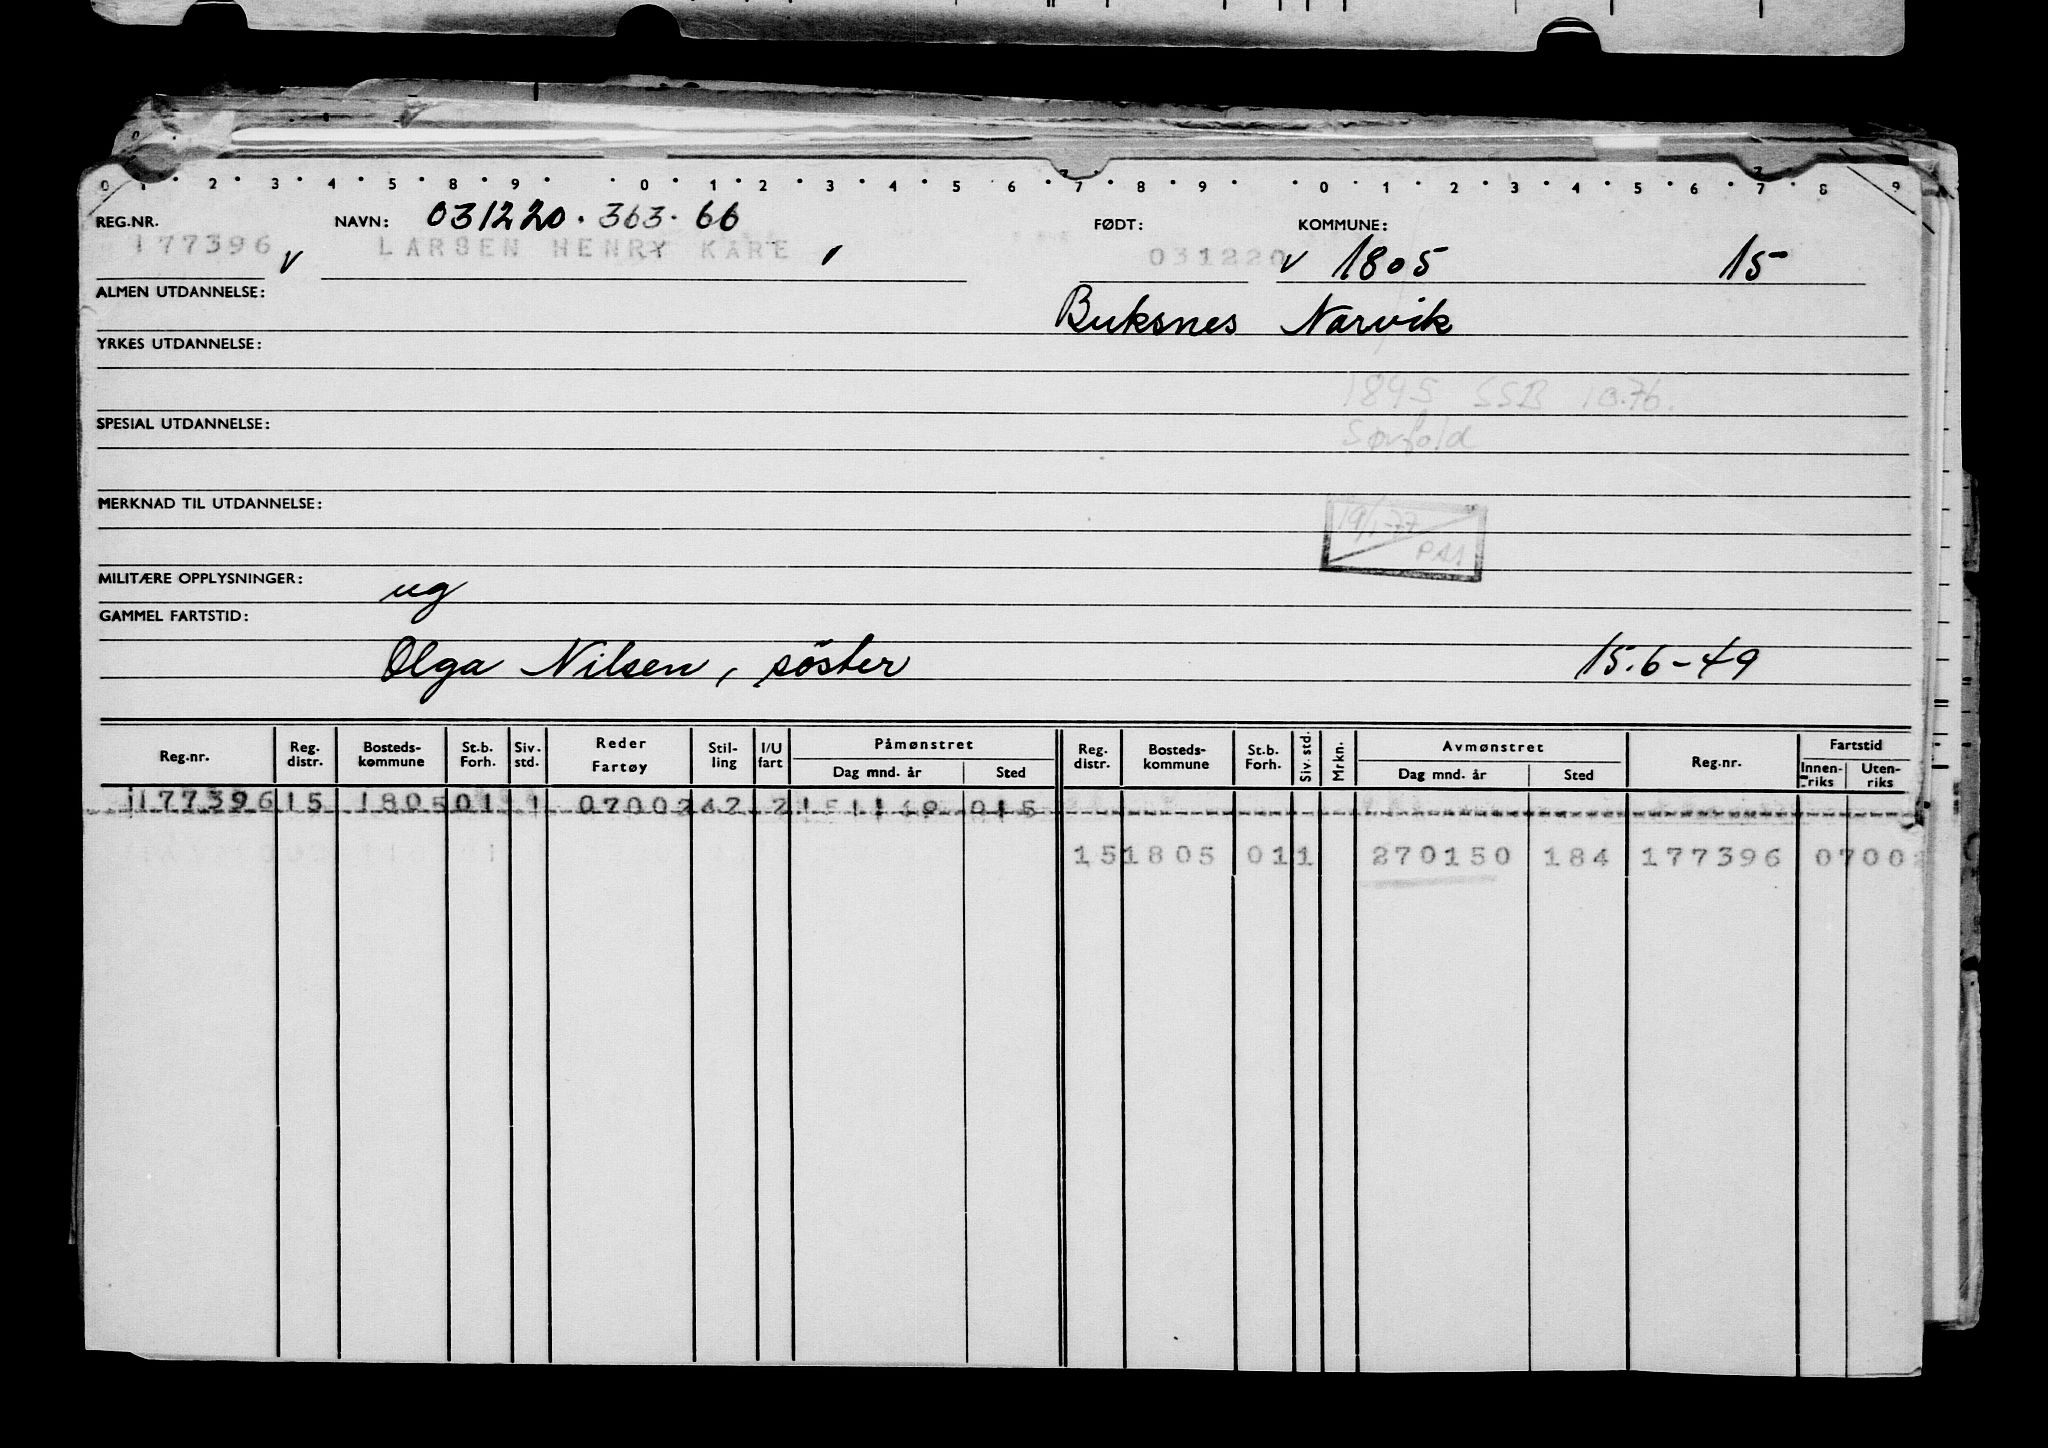 0 1 2 3 4 5 8 9 0 1 2 3 4 5 6 7 8 9 0 1 2 3 4 5 6 7 8 9
REG.NR. NAVN: 031220.363.66 FØDT: KOMMUNE:
177396 v LARSEN HENRY KARE 031220 v 1805 15
ALMEN UTDANNELSE: Buksnes Narvik
YRKES UTDANNELSE:
1895 SSB 10.76.
SPESIAL UTDANNELSE: Sørfold
MERKNAD TIL UTDANNELSE:
19/1-77
PAA
MILITÆRE OPPLYSNINGER: ug
GAMMEL FARTSTID:
Olga Nilsen, söster 15.6-49
Reg.nr. Reg. distr. Bosteds-kommune St.b. Forh. Siv. std. Reder Fartøy Stil-ling I/U fart Påmønstret Dag mnd. år Sted Reg. distr. Bosteds-kommune St.b. Forh. Siv. std. Mrkn. Avmønstret Dag mnd. år Sted Reg.nr. Fartstid Innen-riks Uten-riks
177396 15 1805 01 1 07002 42 2 151149 015
15 1805 01 1 270150 184 177396 07002